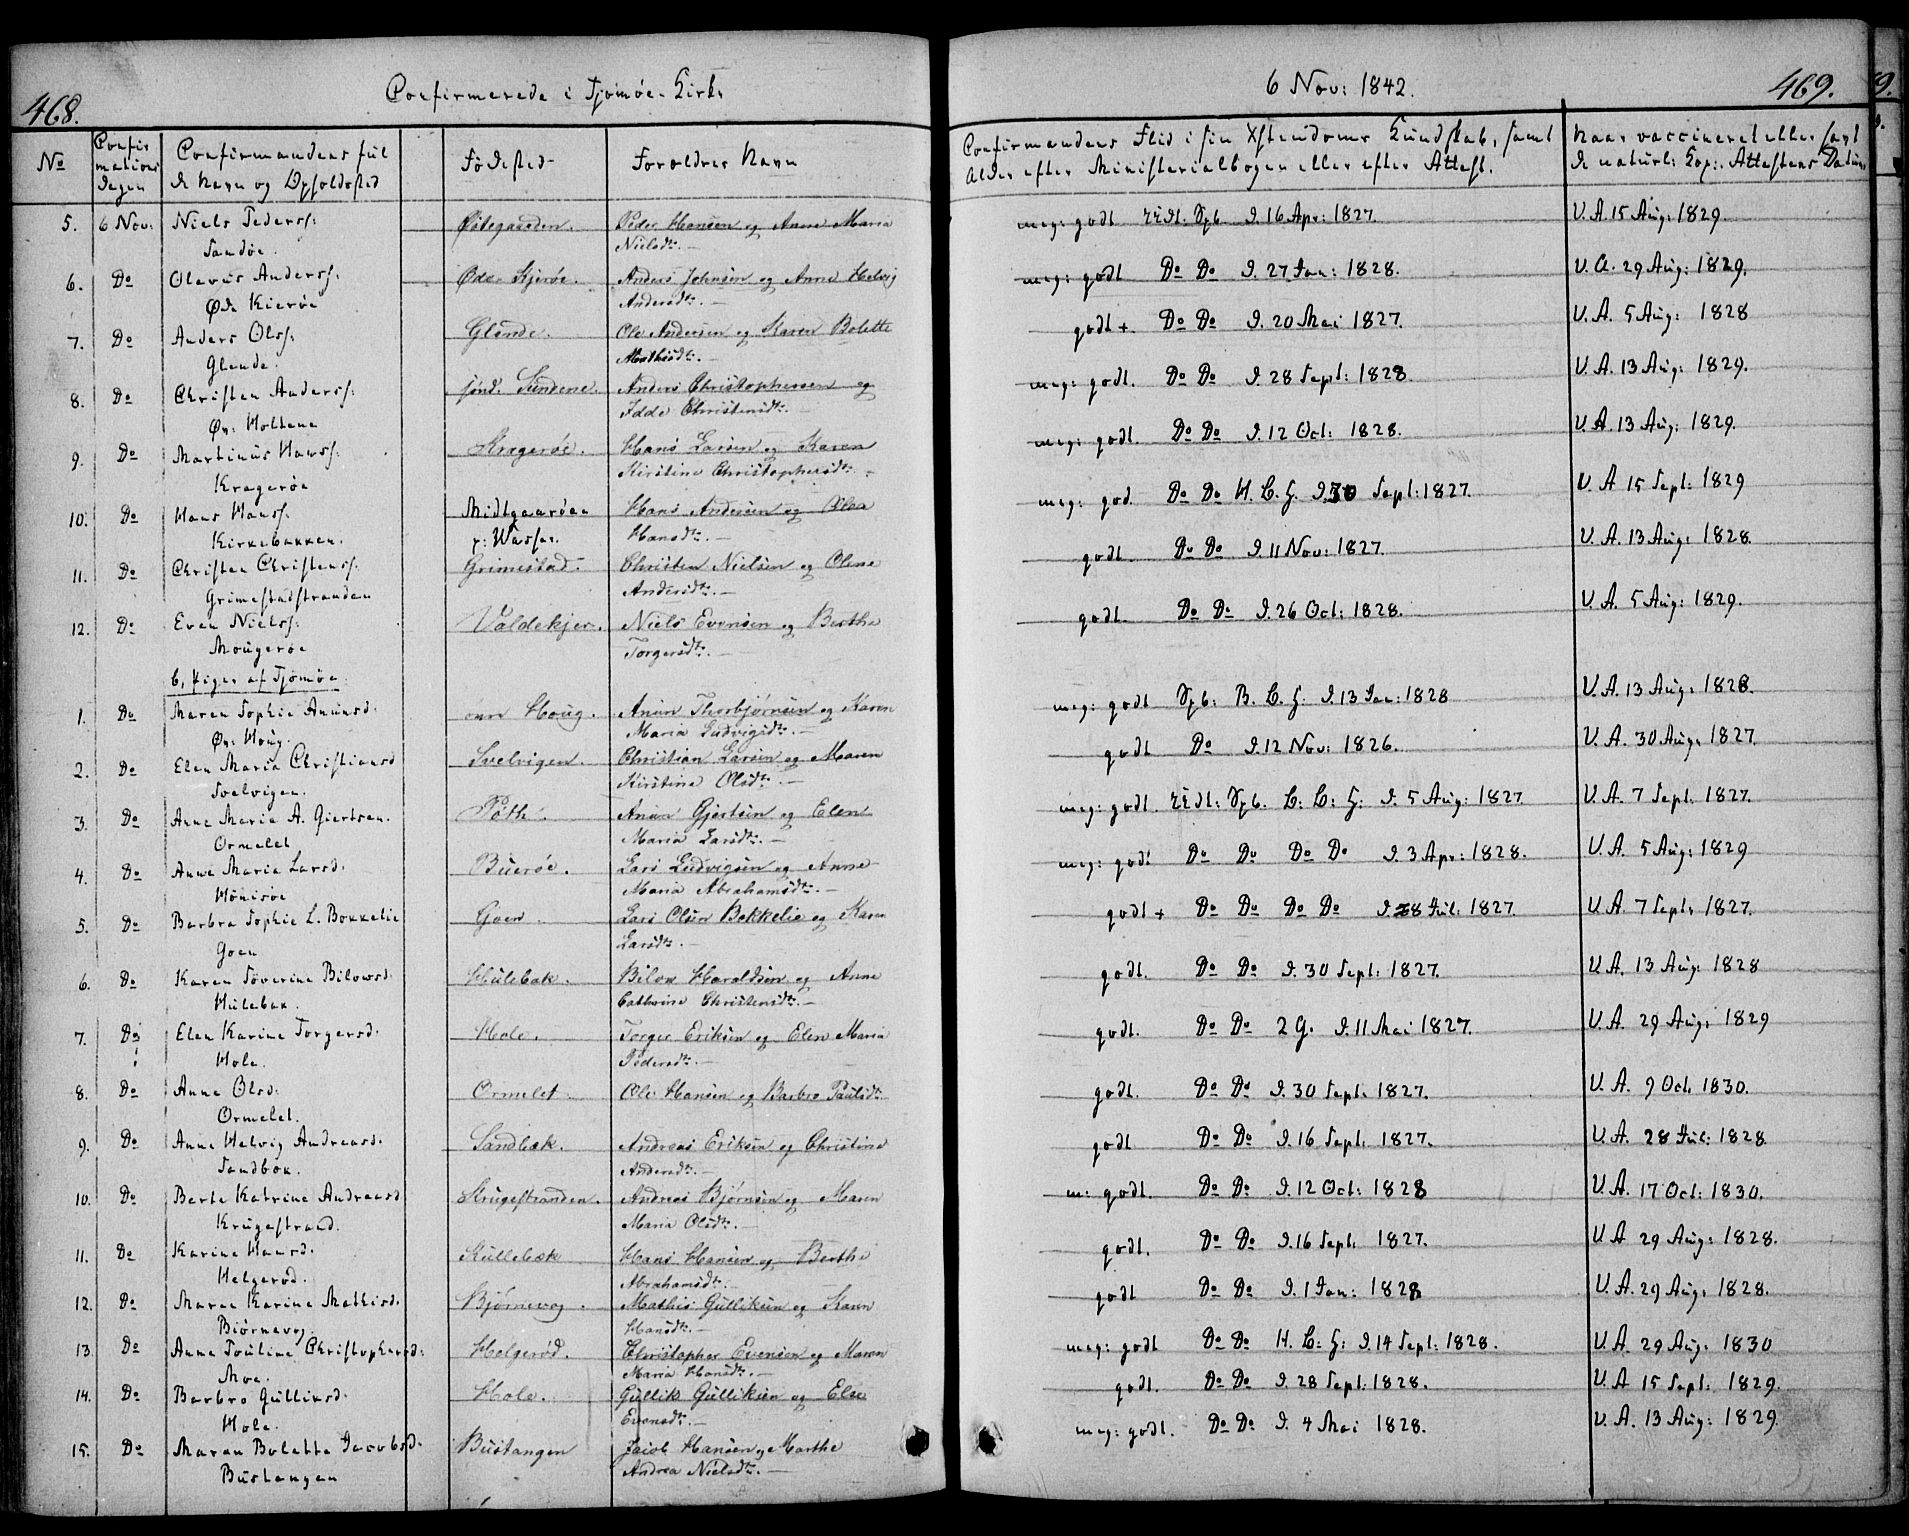 468.
Confirmerede i Tjømøe Kirke
No
Confir
mations
Dagen
Confirmandens ful
de Navn og Opholdsted
Fødested
Forældres Navn
5. 6 Nov: Niels Peders: Østegaarden. Peder Hansen og Anne Maria
Sandøe. Nielsdr. —
6. Do Olavus Anderss: Øde Kjerøe. Anders Johnsen og Anne Helvig
Øde Kierøe Andersdr. —
7. Do Anders Olss: Glende. Ole Andersen og Karen Bolette
Glende. Mathisdr. —
8. Do Christen Anderss: søndr. Sundene. Anders Christophersen og
Øv: Holtene Idde Christensdr. —
9. Do Martinus Hanss: Kragerøe. Hans Larsen og Karen
Kragerøe Kirstine Christophersdr. —
10. Do Hans Hanss: Midtgaarden Hans Andersen og Olea
Kirkebakken. p: Wasser. Hansdr. —
11. Do Christen Christenss: Grimestad. Christen Nielsen og Olene
Grimestadstranden Andersdr. —
12. Do Even Nielss: Valdekjer. Niels Evensen og Berthe
Mougerøe Torgersdr. —
b, Piger af Tjømøe
1. Do Maren Sophie Anunsd: øvre Houg. Anun Thorbjørnsen og Karen
Øv: Houg. Maria Ludvigsdr. —
2. Do Elen Maria Christiansd Svelvigen. Christian Larsen og Maren
Svelvigen. Kirstine Olsdr. —
3. Do Anne Maria A. Giertsen. Røth. Anun Gjertsen og Elen
Ormelet Maria Larsdr. —
4. Do Anne Maria Larsd: Buerøe. Lars Ludvigsen og Anne
Hönisøe Maria Abrahamsdr. —
5. Do Barbra Sophie L. Bekkelie Goen. Lars Olsen Bekkelie og Karen
Goen Larsdr. —
6. Do Karen Søverine Bilowsd: Hulebak. Bilow Haraldsen og Anne
Hulebak. Cathrine Christensdr. —
7. Do Elen Karine Torgersd: Hole. Torger Eriksen og Elen Maria
Hole. Pedersdr. —
8. Do Anne Olsd: Ormelet Ole Hansen og Barbro Paulsdr.
Ormelet.
9. Do Anne Helvig Andreasd: Sandbæk. Andreas Eriksen og Christine
Sandbæk. Andersdr. —
10. Do Berte Katrine Andreasd Krugestranden. Andreas Bjørnsen og Maren
Krugestrand. Maria Olsdr. —
11. Do Karine Hansd: Kullebæk Hans Hansen og Berthe
Helgerød. Abrahamsdr. —
12. Do Maren Karine Mathisd. Bjørnevog. Mathis Gulliksen og Karen
Biørnevog. Hansdr. —
13. Do Anne Pouline Christophersd: Helgerød. Christopher Evensen og Maren
Moe. Maria Hansdr. —
14. Do Barbro Gulliksd: Hole. Gullik Gulliksen og Else
Hole. Evensdr. —
15. Do Maren Bolette Jacobsd: Bustangen Jacob Hansen og Marthe
Bustangen Andrea Nielsdr. —
6 Nov: 1842.
469.
Confirmandens Flid i sin Xstendoms Kundskab, samt
Alder efter Ministerialbogen eller efter Attest.
Naar vaccineret eller havt
de naturl: Kop: Attestens Datum
meg: godt Sp6 D. 16 Apr: 1827. V. A. 15 Aug: 1829.
meg: godt Do Do D. 27 Jan: 1828. V. A. 29 Aug: 1829.
godt +. Do Do D. 20 Mai 1827. V. A. 5 Aug: 1828
meg: godt. Do Do D. 28 Sept: 1828 V. A. 13 Aug: 1829.
meg: godt. Do Do D. 12 Oct: 1828. V. A. 13 Aug: 1829.
meg: god. Do Do H. C. G. D. 30 Sept: 1827. V. A 15 Sept: 1829
godt Do Do D. 11 Nov: 1827. V. A. 13 Aug: 1828.
godt. Do Do D. 26 Oct: 1828. V. A. 5 Aug: 1829.
meg: godt B. C. G. D. 13 Jan: 1828 V. A. 13 Aug: 1828.
godt Do D. 12 Nov: 1826. V. A. 30 Aug: 1827.
meg: godt. C: C: G: D. 5 Aug: 1827 V. A. 7 Sept. 1827.
meg: godt Do Do Do Do D. 3 Apr: 1828. V. A. 5 Aug: 1829
godt + Do Do Do Do D. 28 Jul: 1827. V. A. 7 Sept: 1827.
godt. Do Do D. 30 Sept: 1827. V. A. 13 Aug: 1828
godt. Do Do 2 G. D. 11 Mai 1827. V. A. 29 Aug: 1829
godt. Do Do D. 30 Sept. 1827. V. A. 9 Oct. 1830.
godt Do Do D. 16 Sept. 1827. V. A. 28 Jul: 1828
m: godt. Do Do D. 12 Oct: 1828 V. A. 17 Oct: 1830.
godt. Do Do D. 16 Sept. 1827. V. A 29 Aug: 1828.
godt Do Do D. 1 Jan: 1828 V. A. 29 Aug: 1828.
meg: godt Do Do H. C: G: D. 14 Sept: 1828. V. A. 29 Aug: 1830
godt. Do Do D. 28 Sept. 1828. V. A 15 Sept: 1829.
meg: godt. Do Do D. 4 Mai 1828. V. A. 13 Aug: 1829.